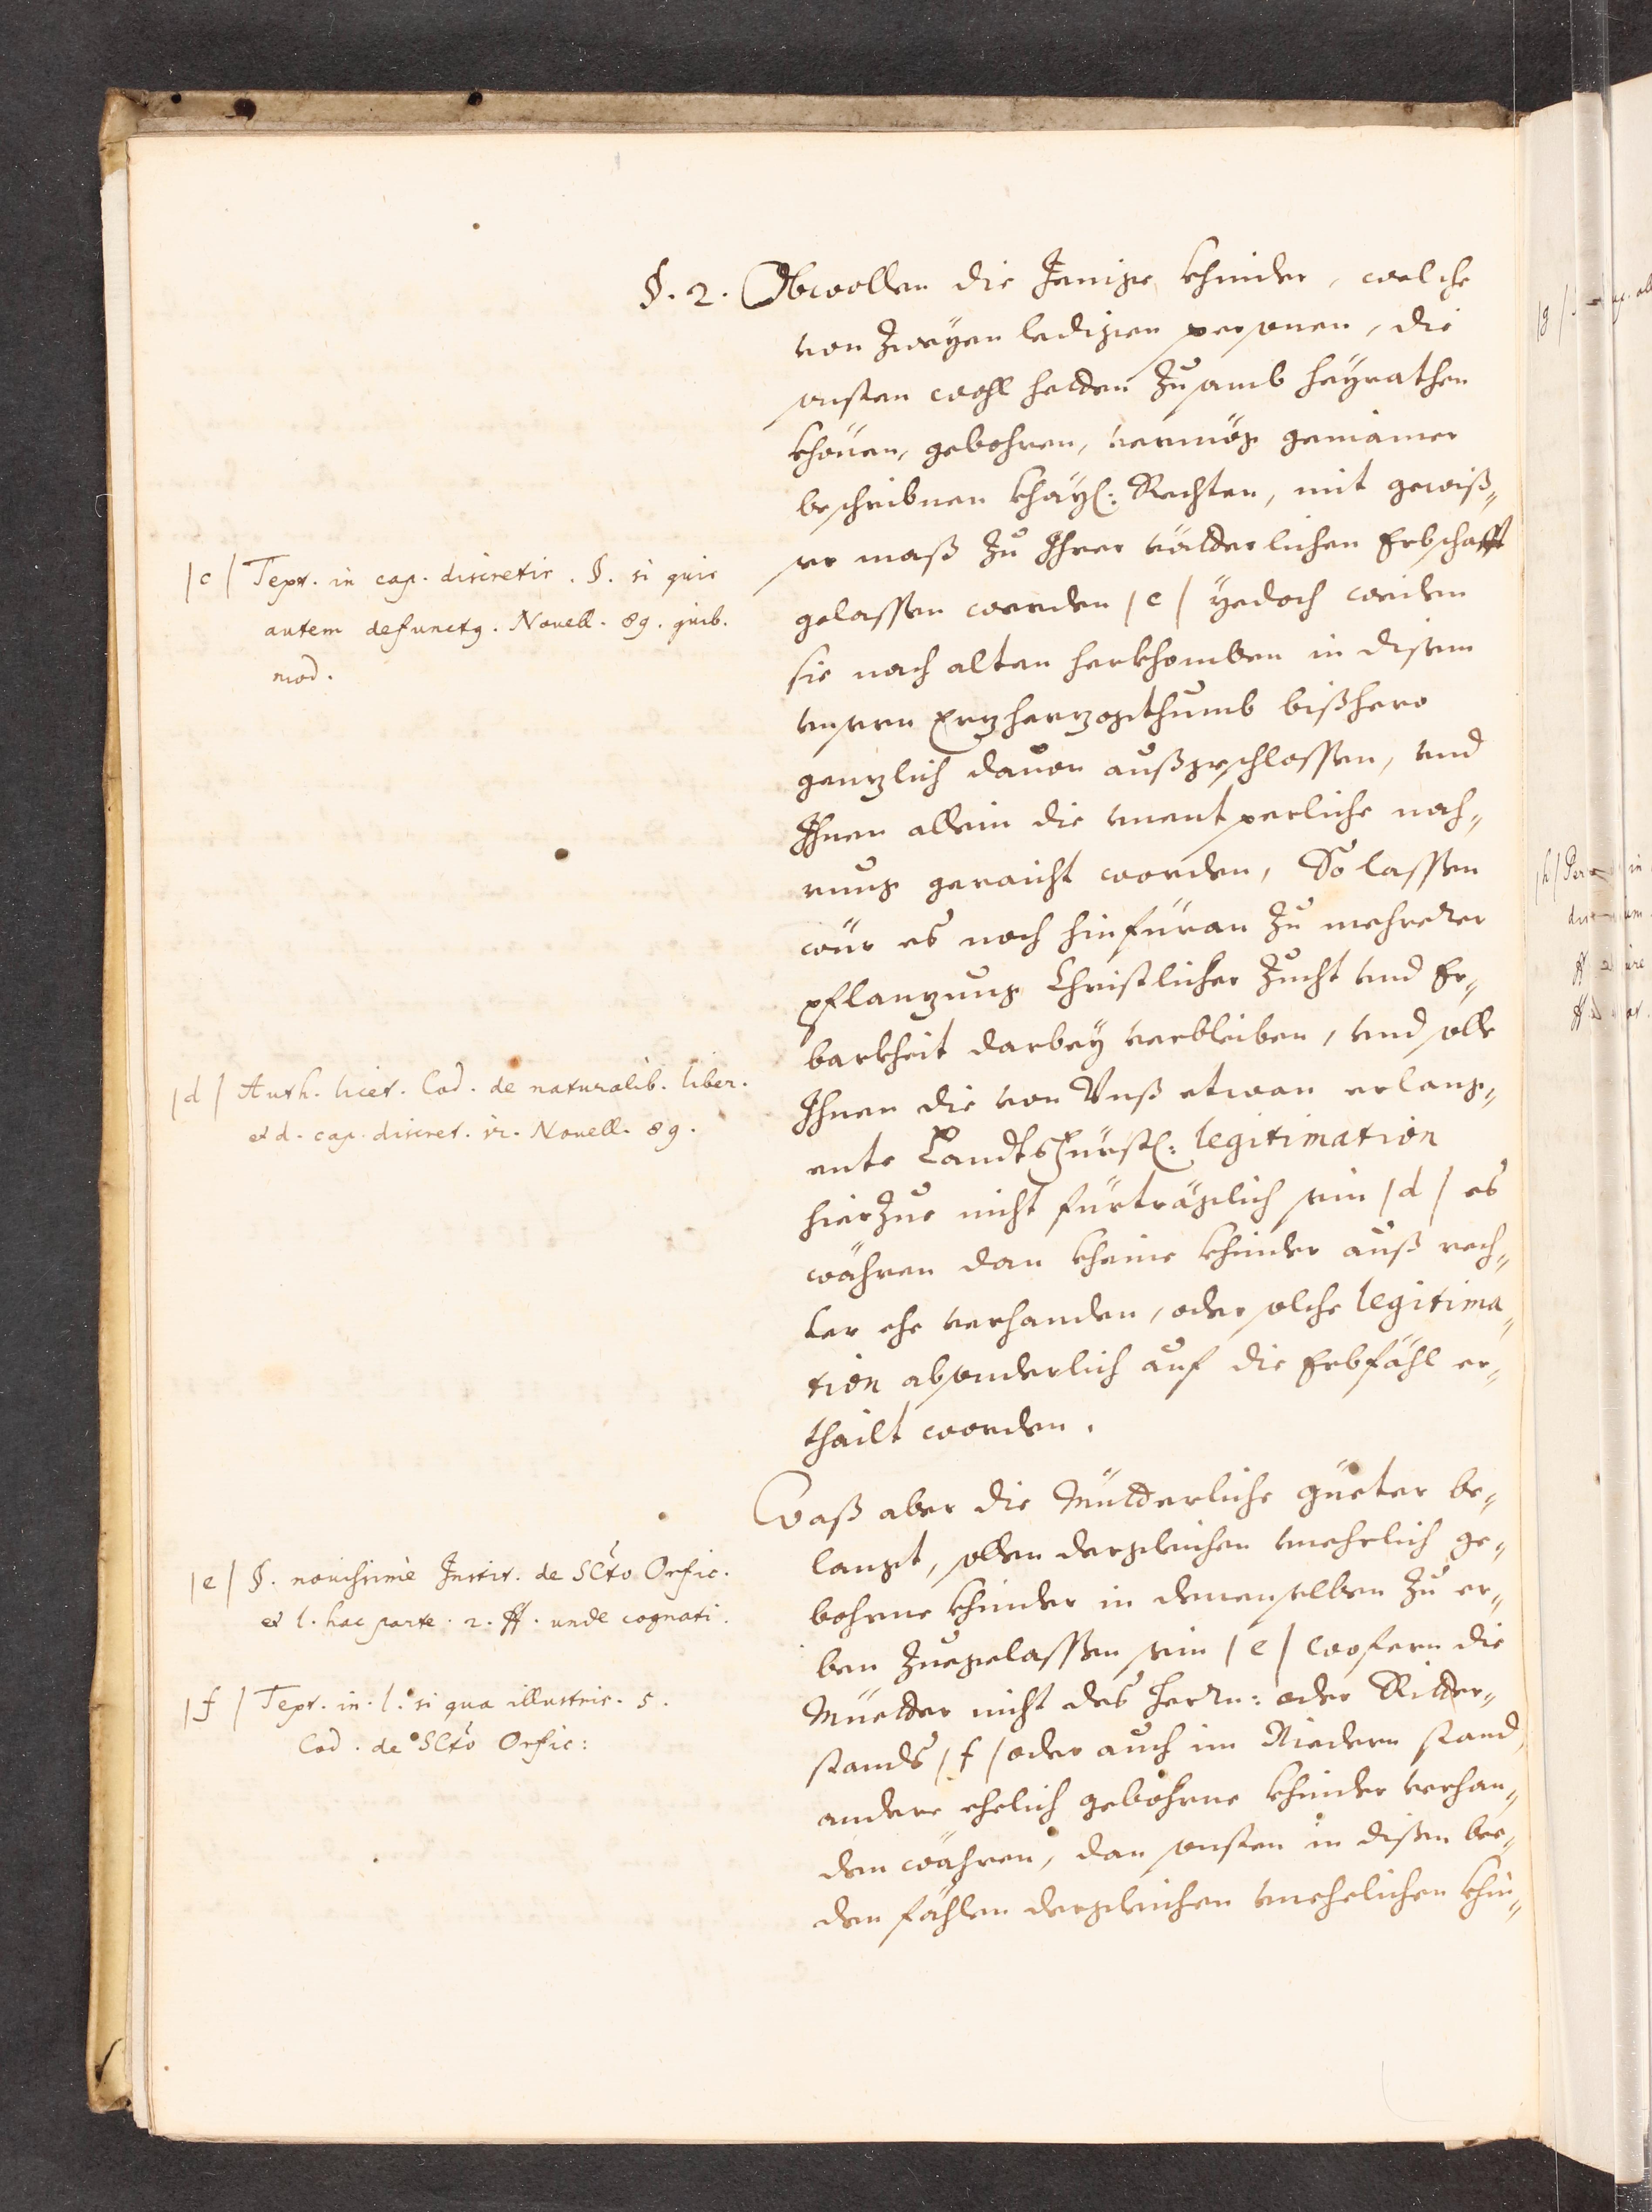 §. 2. Obwollen die Jenige khinder, welche
von Zweyen ledigen personen, die
sonsten wohl hetten Zusamb heyrathen
khönen, gebohren, vermög gemainer
beschribnen khayl: Rechten, mit gewiß„
er maß Zu Ihrer vätterlichen Erbschafft
gelassen werden /c/ yedoch weilen
sie nach alten herkhomben in disem
unsern Ertzhertzogthumb bißhero
gentzlich dauon außgeschlossen, und
Ihnen allein die unentperliche nah„
rung geraicht worden, So lassen
wür es noch hinfüran Zu mehrerer
pflantzung Christlicher Zucht und Er„
barkheit darbey verbleiben, und solle
Ihnen die von Unß etwan erlang„
ente Landtsfürstl: legitimation
hierzue nicht fürträglich sein /d/ es
währen dan kheine khinder auß rech„
ter ehe verhanden, oder solche legitima„
tion absonderlich auf die Erbfähl er„
thailt worden.
Waß aber die Mütterliche güeter be„
langt, sollen dergleichen unehelich ge„
bohrne khinder in denenselben Zu er„
ben Zuegelassen sein /e/ woofern die
Muetter nicht des Herrn: oder Ritter„
stands /f/ oder auch im Niedern stand,
andere ehelich gebohrne khinder verhan„
den währen, dan sonsten in disen bee„
den fählen dergleichen unehelichen khin„
/c/ Text. in cap. discretis. §. si quis
autem defunctq. Nouell. 89. quib.
mod.
/d/ Auth. licet. Cod. de naturalib. liber.
et d. cap. discret. is. Nouell. 89.
/e/ §. nouissimè Instit. de SCto Orfic.
et l. hac parte. 2. ff. unde cognati.
/f/ Text. in. l. si qua illustris. 5.
Cod. de SCto Orfic: